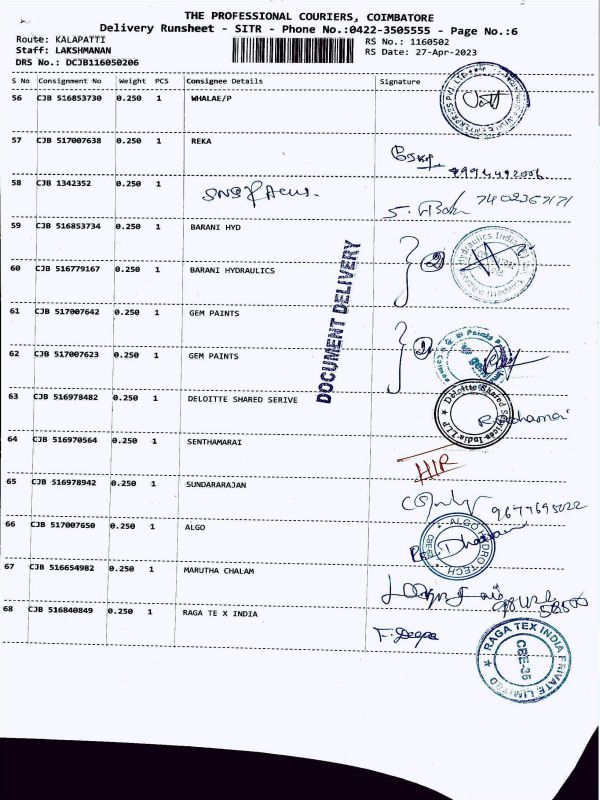 THE PROFESSIONAL COURIERS, COIMBATORE
Delivery Runsheet - SITR - Phone No.:0422-3505555 - Page No.:6
Route: KALAPATTI
Staff: LAKSHMANAN
DRS No.: DCJB116050206
RS No.: 1160502
RS Date: 27-Apr-2023
S No Consignment No Weight PCS Consignee Details Signature
56 CJB 516853730 0.250 1 WHALAE/P
57 CJB 517007638 0.250 1 REKA
58 CJB 1342352 0.250 1
7402367171
59 CJB 516853734 0.250 1 BARANI HYD
2
Hydraulics India
60 CJB 516779167 0.250 1 BARANI HYDRAULICS
DOCUMENT DELIVERY
61 CJB 517007642 0.250 1 GEM PAINTS
2
Paints
62 CJB 517007623 0.250 1 GEM PAINTS
63 CJB 516978482 0.250 1 DELOITTE SHARED SERIVE
Deloitte Shared Services India LLP
64 CJB 516970564 0.250 1 SENTHAMARAI
HIR
65 CJB 516978942 0.250 1 SUNDARARAJAN
9677695022
66 CJB 517007650 0.250 1 ALGO
ALGO HYDRO TECH
67 CJB 516654982 0.250 1 MARUTHA CHALAM
68 CJB 516840849 0.250 1 RAGA TE X INDIA
F. Deepa
RAGA TEX INDIA PRIVATE LIMITED
CBE-35